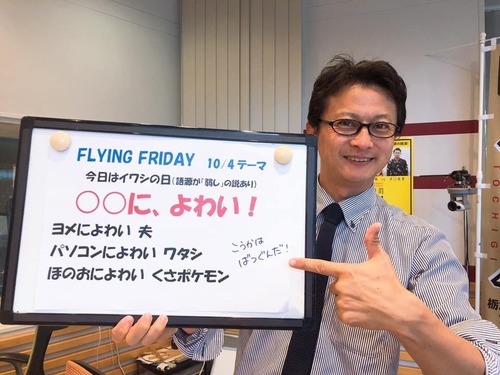 FLYING FRIDAY 10/4テーマ
今日はイワシの日(語源が「弱し」の説あり)
○○に、よわい!
ヨメによわい 夫
パソコンによわい ワタシ
ほのおによわい くさポケモン
こうかは
ばつぐんだ!
TOCHIGI
栃